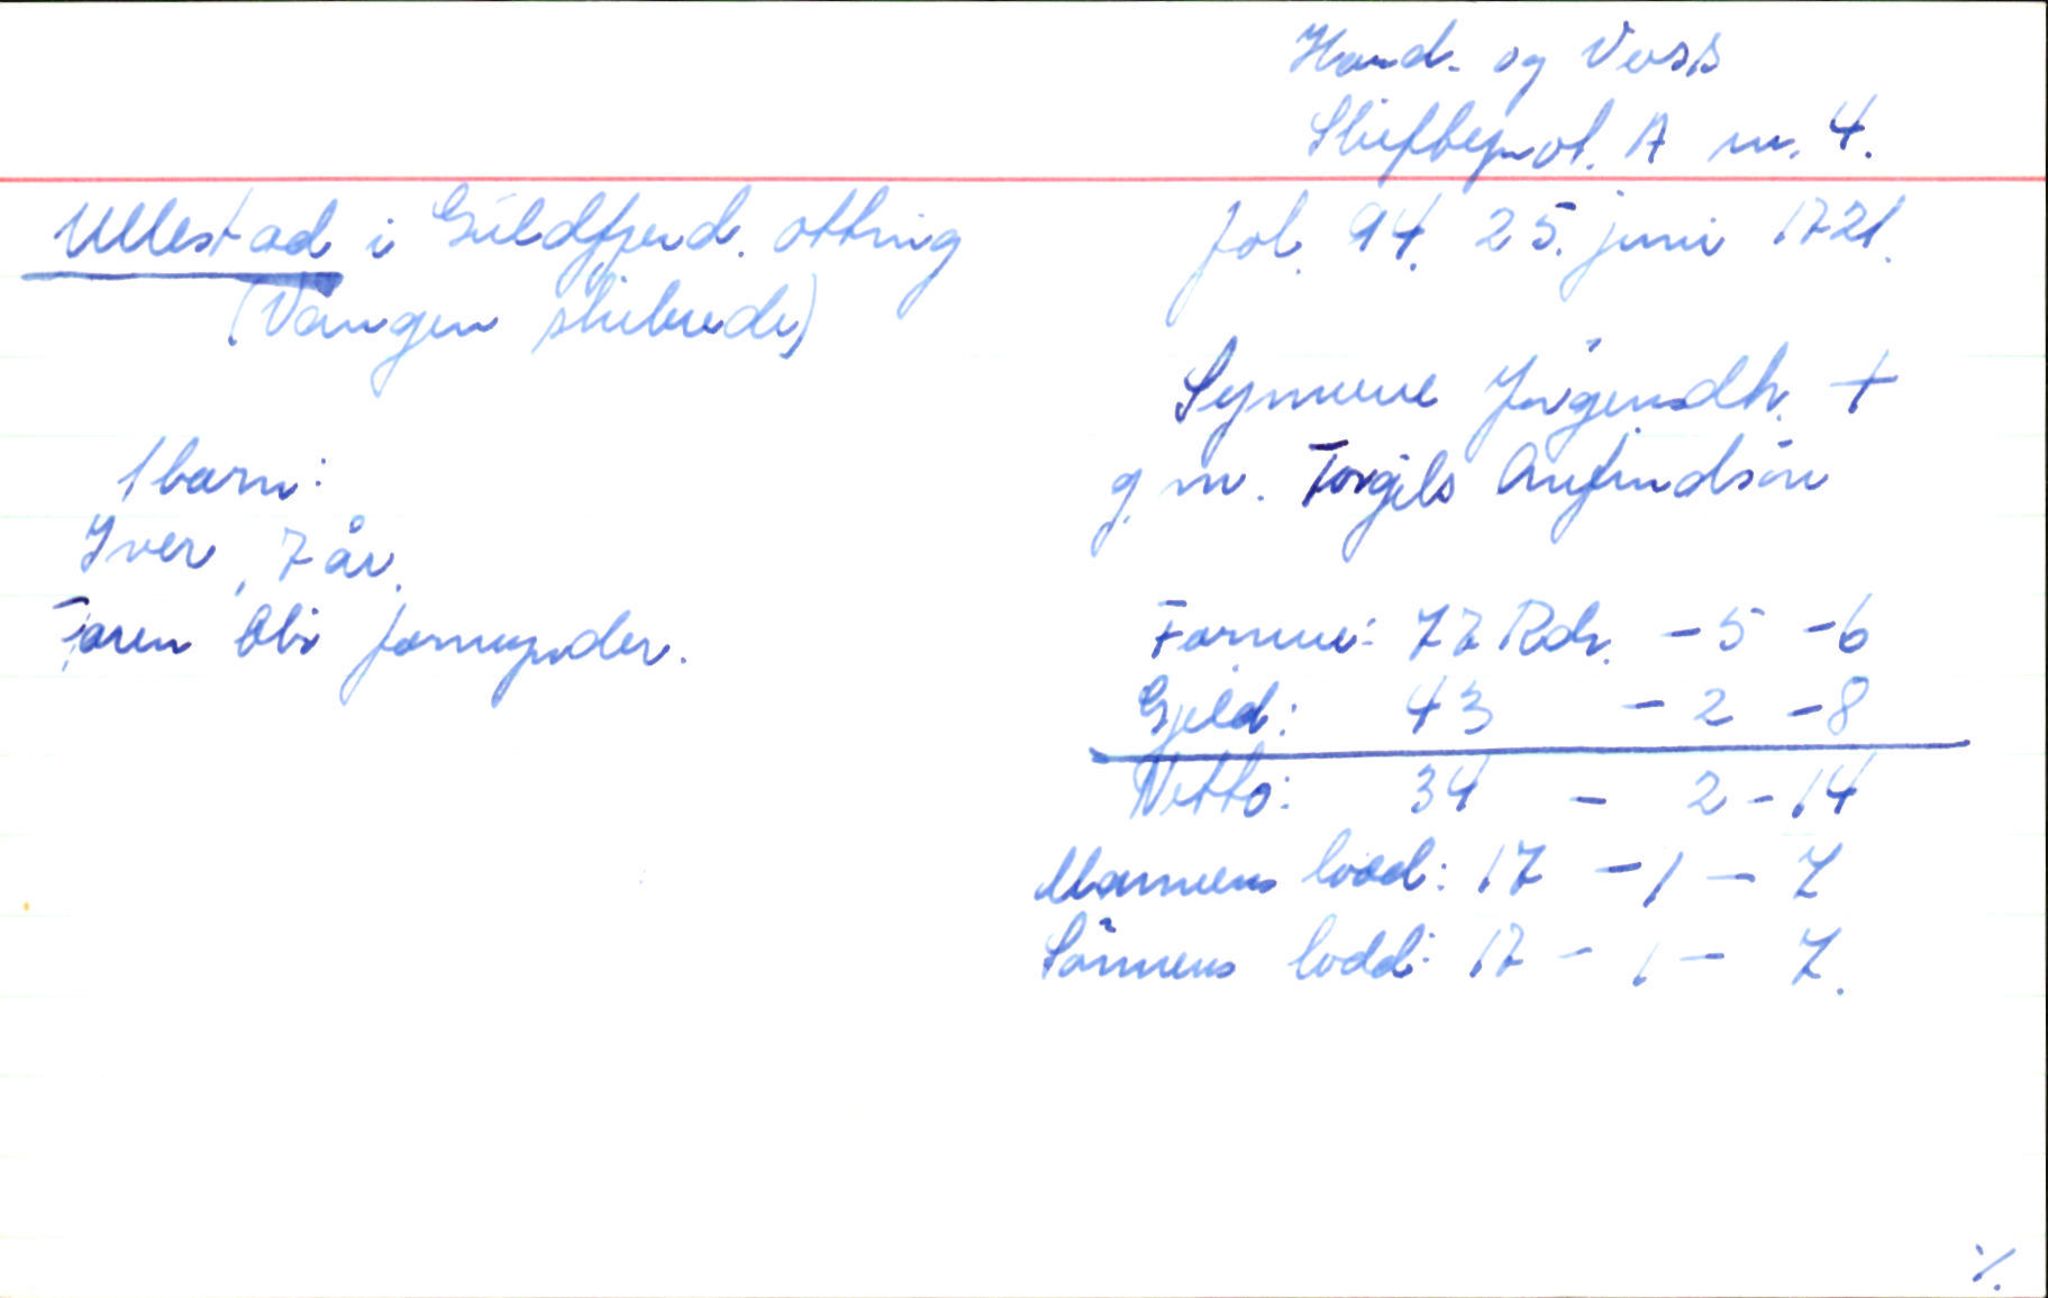 Hard. og Voss
Skifteprot. A nr. 4.
Ullestad i Guldfjerd. otting
(Vangen skibrede)
fol. 94. 25. juni 1721.
Synneve Jørgensdh. +
g. m. Torgils Anfindsön
1 barn:
Iver, 7 år.
Faren blir formynder.
Formue: 77 Rdr. - 5 - 6
Gjeld: 43 - 2 - 8
Netto: 34 - 2 - 14
Mannens lodd: 17 - 1 - 7
Sönnens lodd: 17 - 1 - 7.